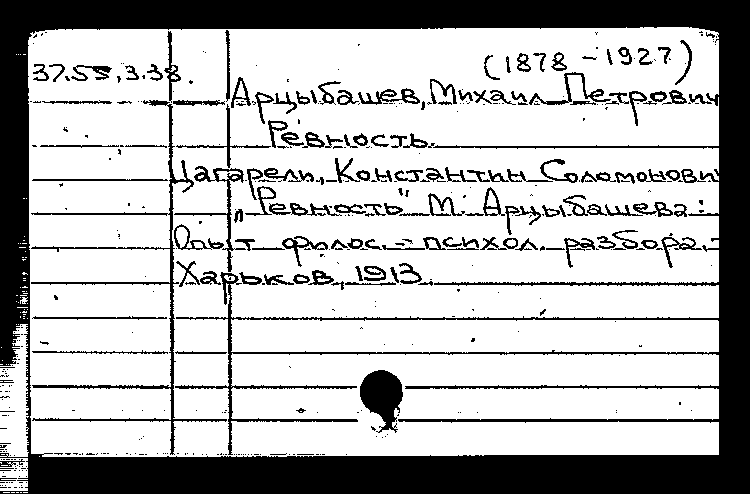 (1878-1927)
37.55,3.38.
Арцыбашев, Михаил Петрович
Ревность.
Цагарели, Константин Соломонович
„Ревность" М. Арцыбашева:
Опыт филос.-психол. разбора.-
Харьков, 1913.